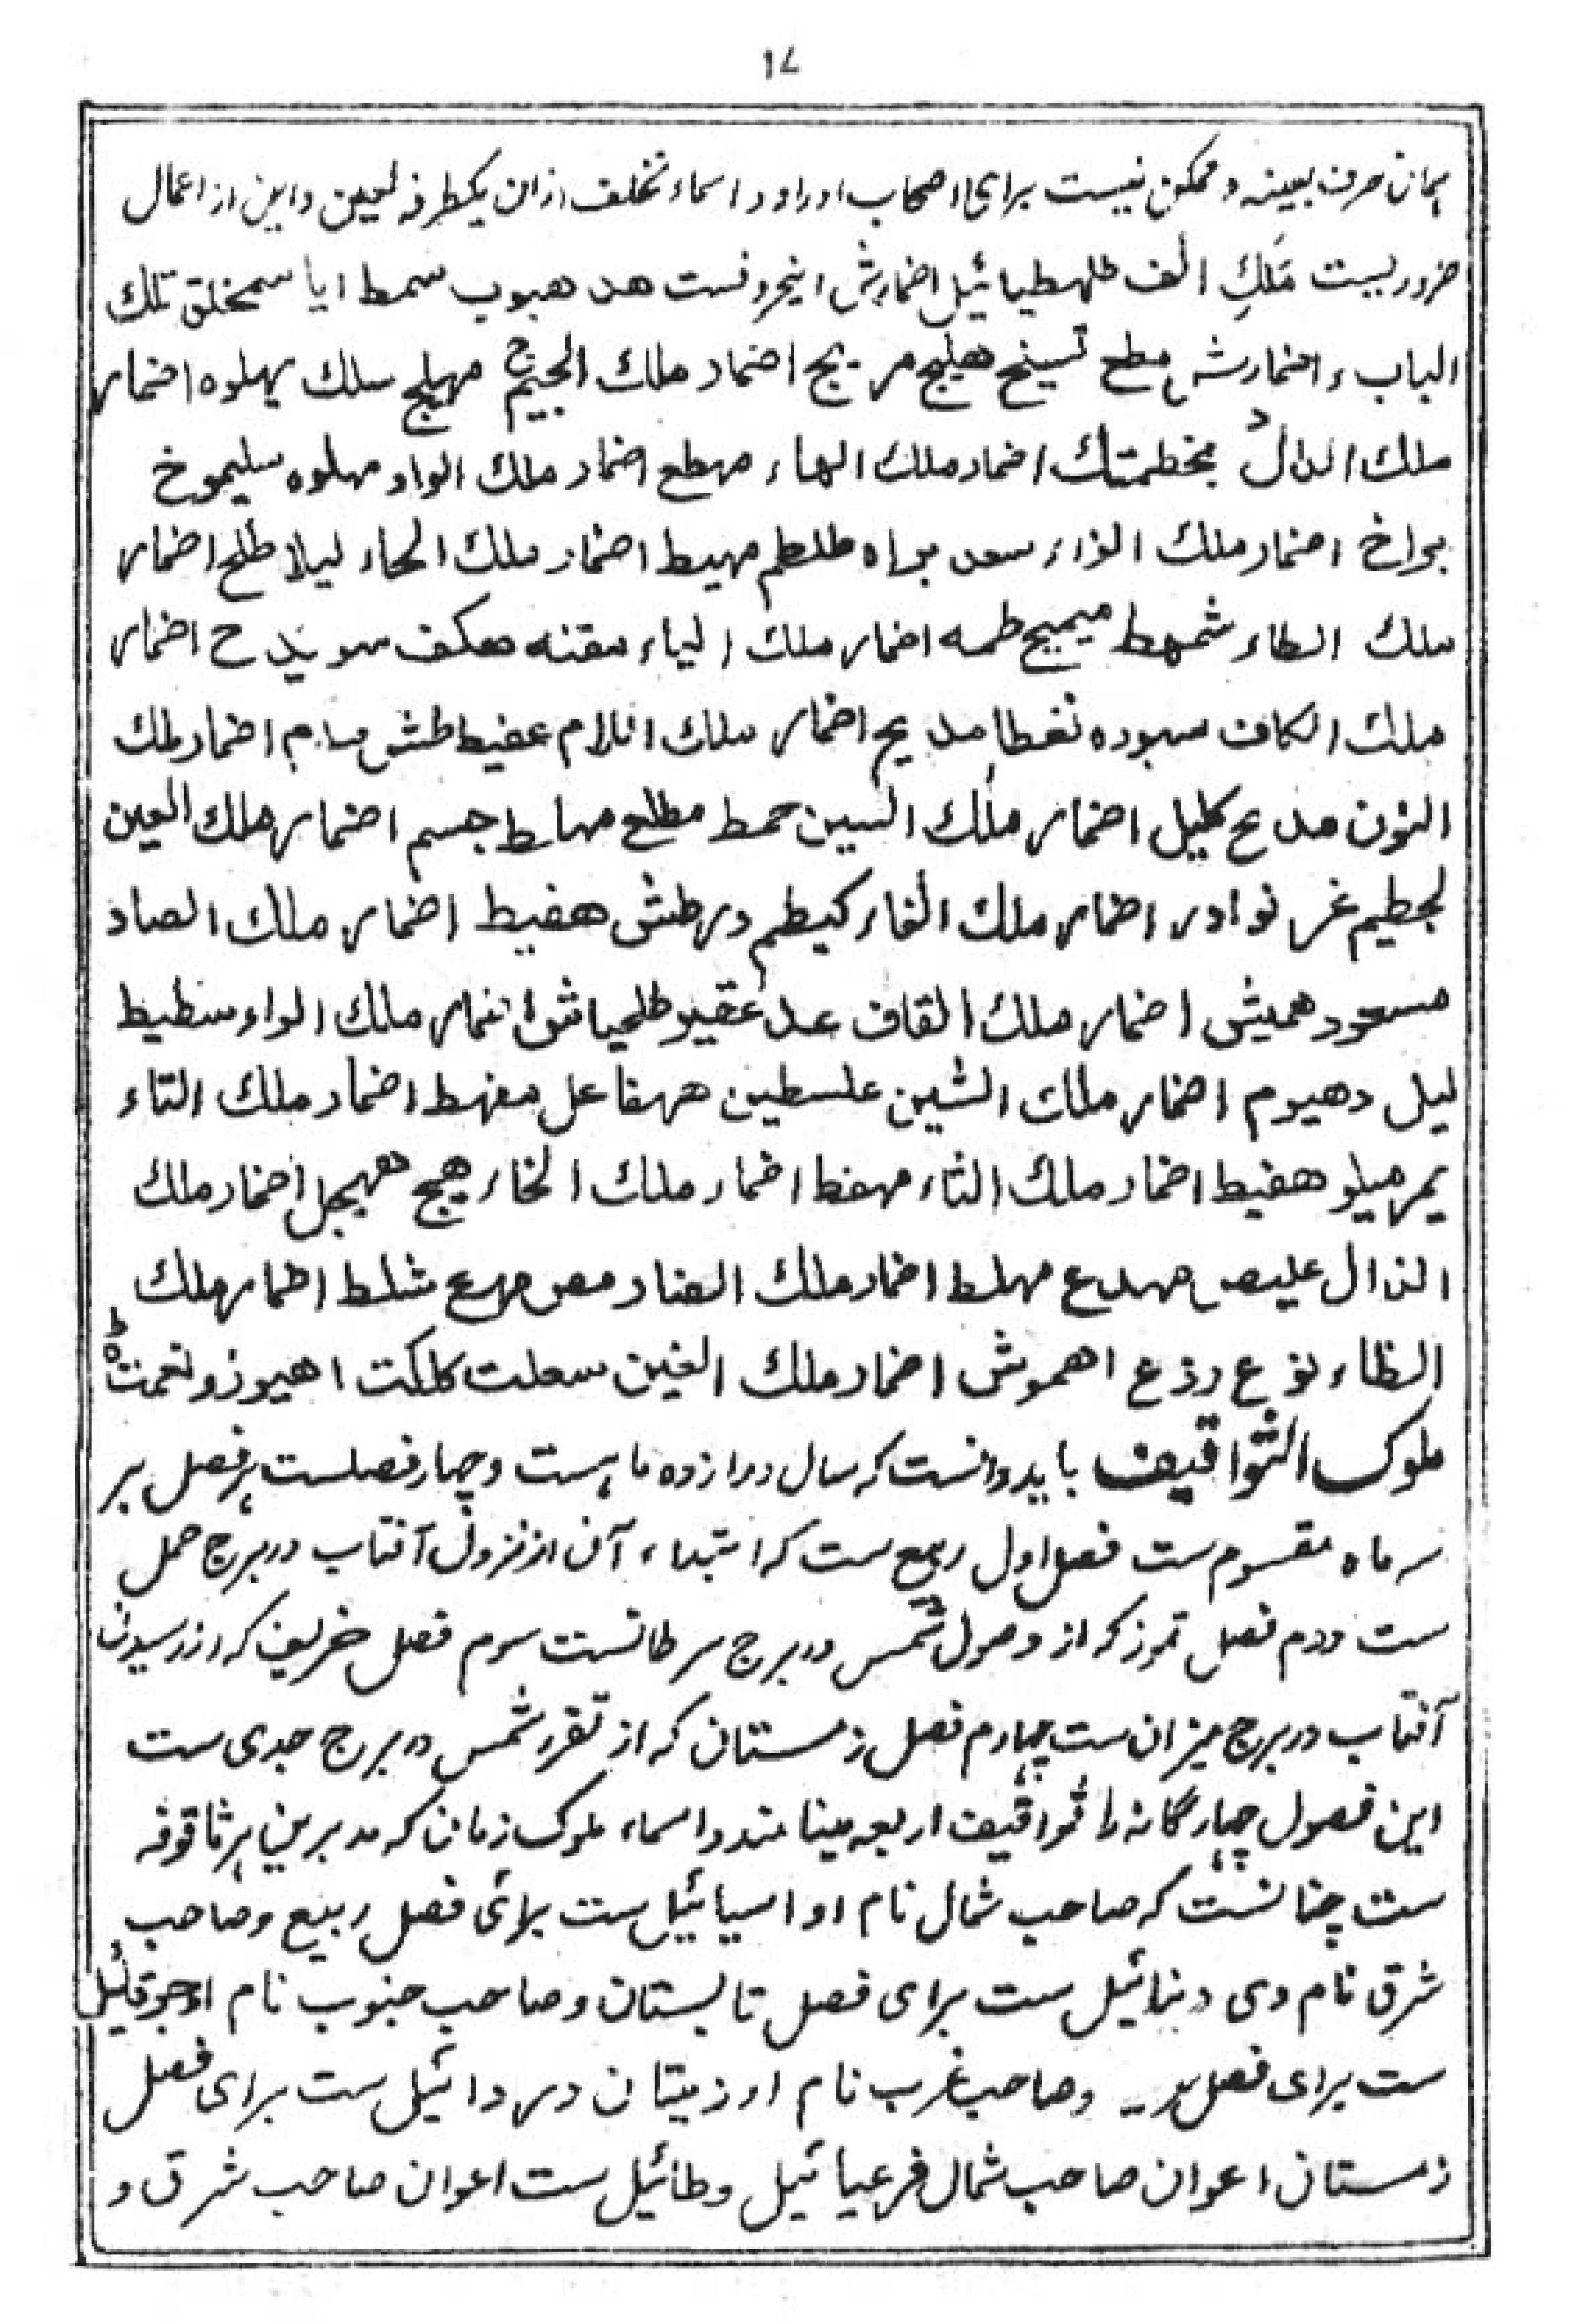 ۱۷
همان حرف بعینه و ممکن نیست برای اصحاب اوراد و اسماء تخلف ازان یکطرفة لعین و این از اعمال
ضروریست مَلَكِ الف طهطیائیل اضمارش اینحرو فست هدہبوب سمط ایا سمخلق تلك
الباب و اضمارش مطع تسینح هلیج مریج اضمار ملك الجیم مهلج سلك یهلوه اضمار
ملك الدال مخطمتك اضمار ملك الهاء مهطع اضمار ملك الواو مهلوه سلیموخ
براخ اضمار ملك الزاء سعد براه طلطم مهیط اضمار ملك الحاء لیلا طلح اضمار
ملك الطاء شمهط میمیج طمه اضمار ملك الیاء مقنه هکف سویدح اضمار
ملك الکاف سبوده نغطا مدیح اضمار ملك اللام عفیط طش سام اضمار ملك
النون مدعح کلیل اضمار ملك السین حمط مطلع مهاط جسم اضمار ملك العین
لجطیم غر نوادر اضمار ملك الفاء کیطم درطش هفیط اضمار ملك الصاد
مسعود همیش اضمار ملك القاف عد عقیو طلحیاش اضمار ملك الراء سطیط
لیل دهیوم اضمار ملك الشین علسطین هرهفاعل مفهط اضمار ملك التاء
یمر میلو هفیط اضمار ملك الثاء مهفط اضمار ملك الخاء هیج مهیجل اضمار ملك
الذال علیص مهدع مهلط اضمار ملك الضاد مص مهع شلط اظمار ملك
الظاء نوع رذع اهموش اضمار ملك الغین سعلت کلکت اهیوزونعمت
ملوک الثواقیف باید دانست که سال دوازده ماہست و چهار فصلست ہر فصل بر
سه ماه مقسوم ست فصل اول ربیع ست که ابتداء آن از نزول آفتاب در برج حمل
ست دوم فصل تموز که از وصول شمس در برج سرطانست سوم فصل خریف که از رسیدن
آفتاب در برج میزان ست چهارم فصل زمستان که از تقرر شمس در برج جدی ست
این فصول چهارگانه را ثواقیف اربعه مینامند و اسماء ملوک زمان که مدبرین ہر ثاقوفه
ست چنانست که صاحب شمال نام او اسیائیل ست برای فصل ربیع و صاحب
شرق نام وی دنرائیل ست برای فصل تابستان و صاحب جنوب نام او جوقائیل
ست برای فصل و صاحب غرب نام او زمیتان دردائیل ست برای فصل
زمستان اعوان صاحب شمال فرعیائیل و طائیل ست اعوان صاحب شرق و